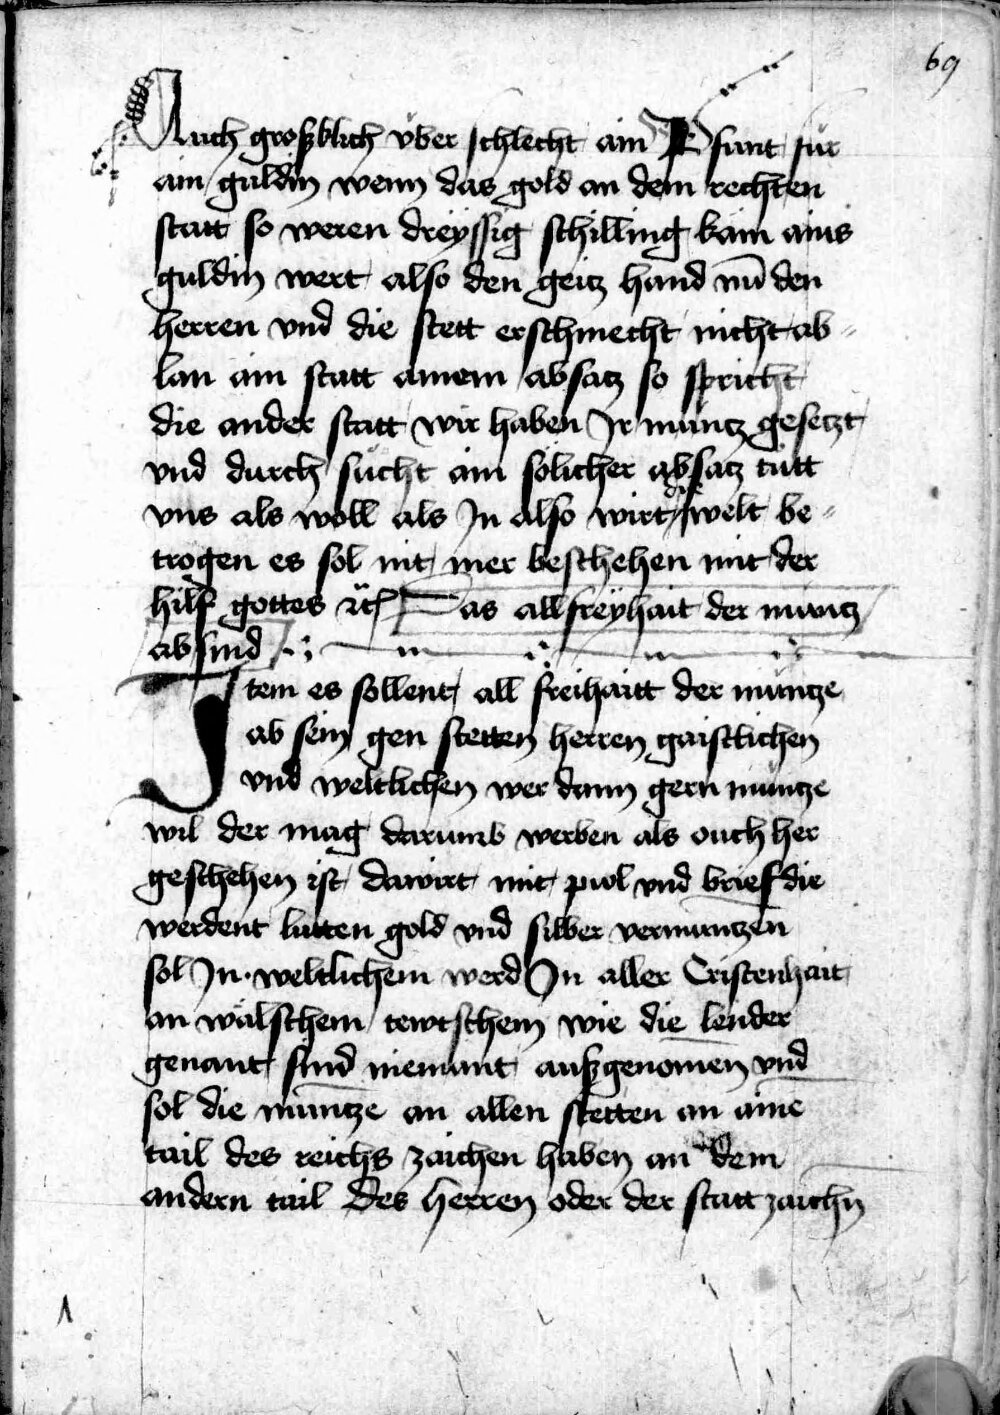 69
Auch großklich vͤber schlecht ain Pfunt für
ain guldin wenn das gold an dem rechten
statt so weren dreÿssig schilling kam ains
guldin wert also den geitz hand nū den
herren vnd die stett erschmecht nicht ab-
lan ain statt ainem absatz so spricht
die ander statt wir haben Ir müntz gesetzt
vnd durch sücht ain sölicher absatz tütt
vns als woll als In also wirt die welt be-
trogen es sol nit mer beschehen mit der
hilf gottes ꝛc̃ Das all freÿhait der müntz
ab sind
Item es sollent all freihaitt der müntze
ab sein gen stetten herren gaistlichen
vnd weltlichen wer dann gern müntze
wil der mag darumb werben als ouch her
geschehen ist dawirt mit pwl vnd brief die
werdent lutten gold vnd silber vermüntzen
sol In weltlichem werd In aller Cristenhait
an wälschem tewtschem wie die lender
genant sind niemant außgenomen vnd
sol die müntze an allen stetten an aine
tail des reichs zaichen haben an dem
andern tail des herren oder der statt zaichn